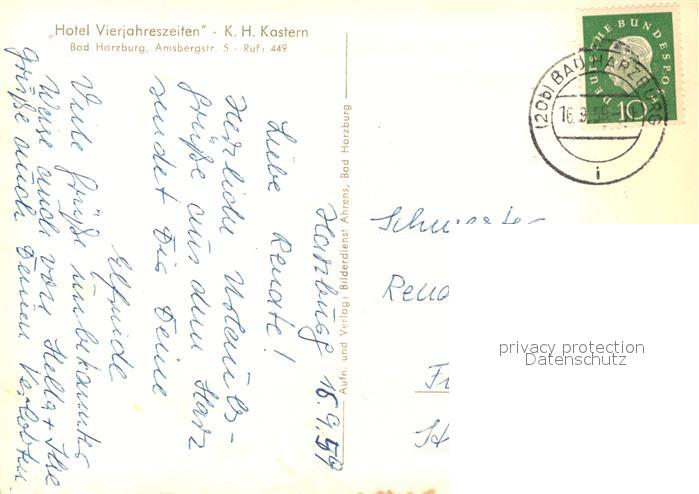 „Hotel Vierjahreszeiten" · K. H. Kastern
Bad Harzburg, Amsbergstr. 5 · Ruf: 449
Harzburg 16.9.59
Liebe Renate!
Herzliche Urlaubs-
grüße aus dem Harz
sendet Dir Deine
Elfriede
Viele Grüße unbekannter
Weise auch von Hella +
grüße auch Deinen Verlobten
Aufn. und Verlag: Bilderdienst Ahrens, Bad Harzburg
DEUTSCHE BUNDESPOST
10
(20b) BAD HARZBURG
16.9.59
i
Schwester
Rena
F
St
privacy protection
Datenschutz